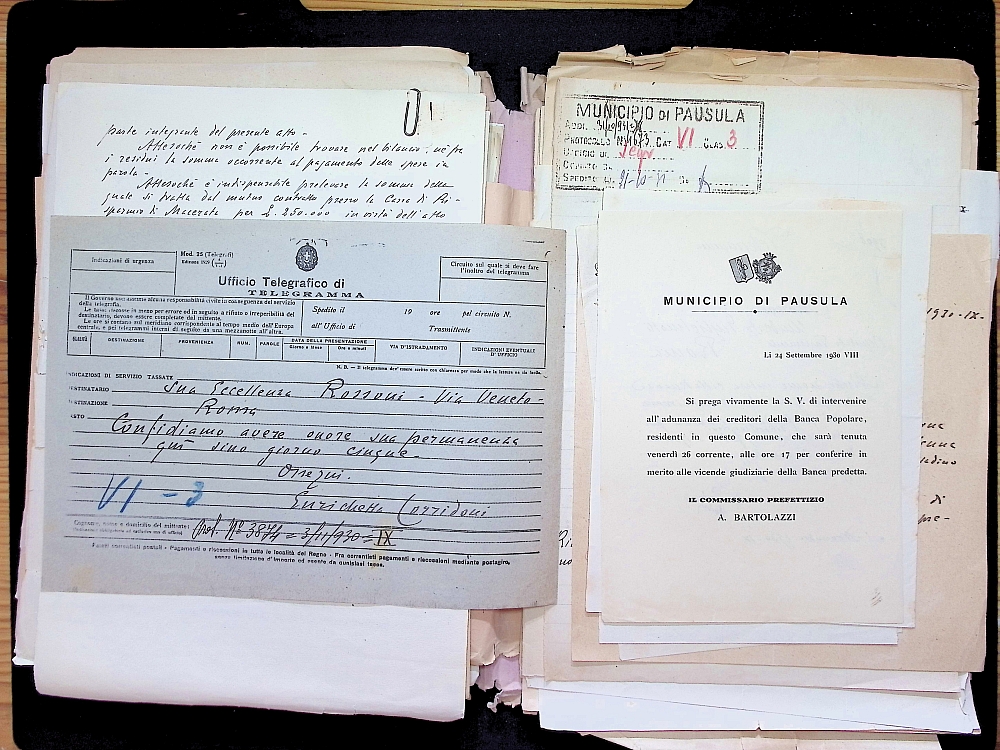 parte integrante del presente atto -
Attesochè non è possibile trovare nel bilancio, nè fra
i residui la somma occorrente al pagamento delle spese in
parola -
Attesochè è indispensabile prelevare la somma della
quale si tratta dal mutuo contratto presso la Cassa di Ri-
sparmio di Macerata per £. 250.000 in vista dell'atto
Indicazioni di urgenza
Mod. 25 (Telegrafi)
Edizione 1929
Ufficio Telegrafico di
TELEGRAMMA
Circuito sul quale si deve fare
l'inoltro del telegramma
Il Governo non assume alcuna responsabilità civile in conseguenza del servizio
della telegrafia.
Le tasse riscosse in meno per errore ed in seguito a rifiuto o irreperibilità del
destinatario, devono essere completate dal mittente.
Le ore si contano sul meridiano corrispondente al tempo medio dell'Europa
centrale, e pei telegrammi interni di seguito da una mezzanotte all'altra.
Spedito il 19 ore pel circuito N.
all'Ufficio di Trasmittente
QUALITÀ DESTINAZIONE PROVENIENZA NUM. PAROLE DATA DELLA PRESENTAZIONE VIA D'ISTRADAMENTO INDICAZIONI EVENTUALI
Giorno e Mese Ore e minuti D'UFFICIO
N. B. - Il telegramma dev'essere scritto con chiarezza per modo che la lettura sia facile.
INDICAZIONI DI SERVIZIO TASSATE
DESTINATARIO Sua Eccellenza Rossoni - Via Veneto -
DESTINAZIONE Roma
TESTO Confidiamo avere onore sua permanenza
qui sino giorno cinque
Ossequi.
Enrichetta Corridoni
VI - 3
Cognome, nome e domicilio del mittente:
Prot. Nº 3874 = 3/11/930 = IX
I conti correntisti postali - Pagamenti e riscossioni in tutte le località del Regno - Fra correntisti pagamenti e riscossioni mediante postagiro,
senza limitazione d'importo ed esente da qualsiasi tassa.
MUNICIPIO DI PAUSULA
ADDÌ
PROTOCOLLO N. CAT VI CLAS. 3
UFFICIO DI Segr.
SPEDITO
1930-IX-
MUNICIPIO DI PAUSULA
Li 24 Settembre 1930 VIII
Si prega vivamente la S. V. di intervenire
all'adunanza dei creditori della Banca Popolare,
residenti in questo Comune, che sarà tenuta
venerdì 26 corrente, alle ore 17 per conferire in
merito alle vicende giudiziarie della Banca predetta.
IL COMMISSARIO PREFETTIZIO
A. BARTOLAZZI
di